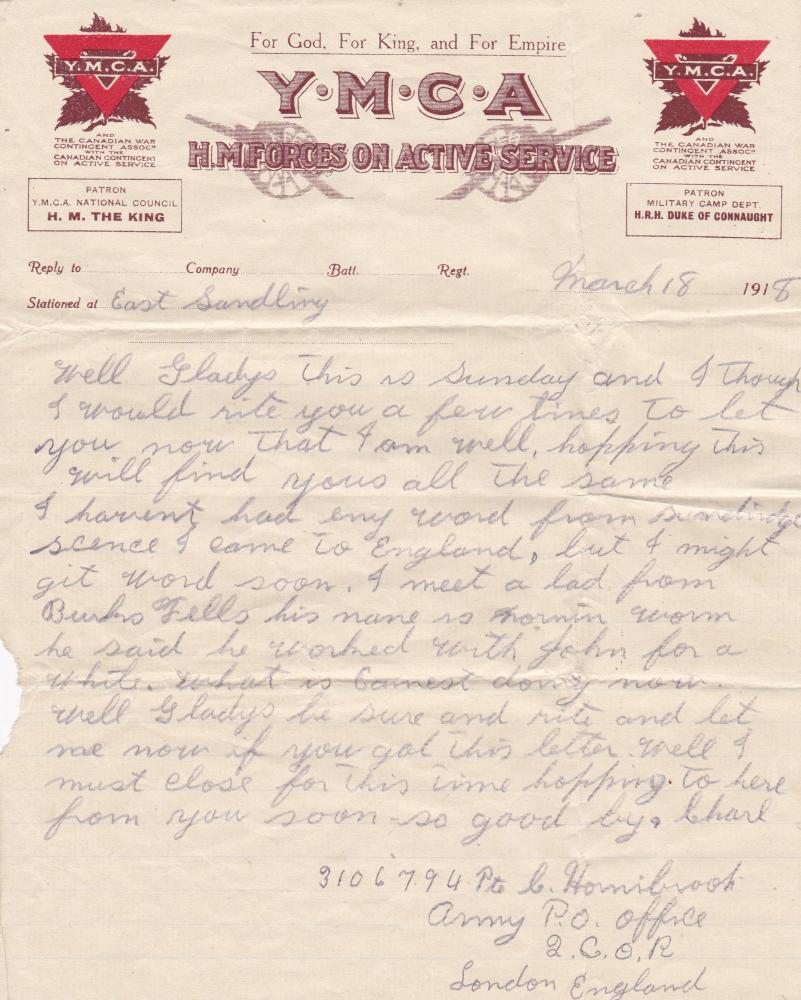 For God, For King, and For Empire
Y.M.C.A.
Y·M·C·A
Y.M.C.A.
H.M. FORCES ON ACTIVE SERVICE
AND
THE CANADIAN WAR
CONTINGENT ASSOCN
WITH THE
CANADIAN CONTINGENT
ON ACTIVE SERVICE
AND
THE CANADIAN WAR
CONTINGENT ASSOCN
WITH THE
CANADIAN CONTINGENT
ON ACTIVE SERVICE
PATRON
Y.M.C.A. NATIONAL COUNCIL
H. M. THE KING
PATRON
MILITARY CAMP DEPT.
H.R.H. DUKE OF CONNAUGHT
Reply to Company Batt. Regt.
March 18 1918
Stationed at East Sandling
Well Gladys this is Sunday and I though
I would rite you a few times to let
you now that I am well, hopping this
will find yous all the same
I havent had eny word from
scence I came to England, but I might
git word soon. I meet a lad from
Burks Fells his name is worm
he said he worked with John for a
white. What is Earnest doing now.
Well Gladys be sure and rite and let
me now if you got this letter. Well I
must close for this time hopping to here
from you soon so good by. Charl
3106794 Pte C. Hornibrook
Army P.O. office
2.C.O.R
London England